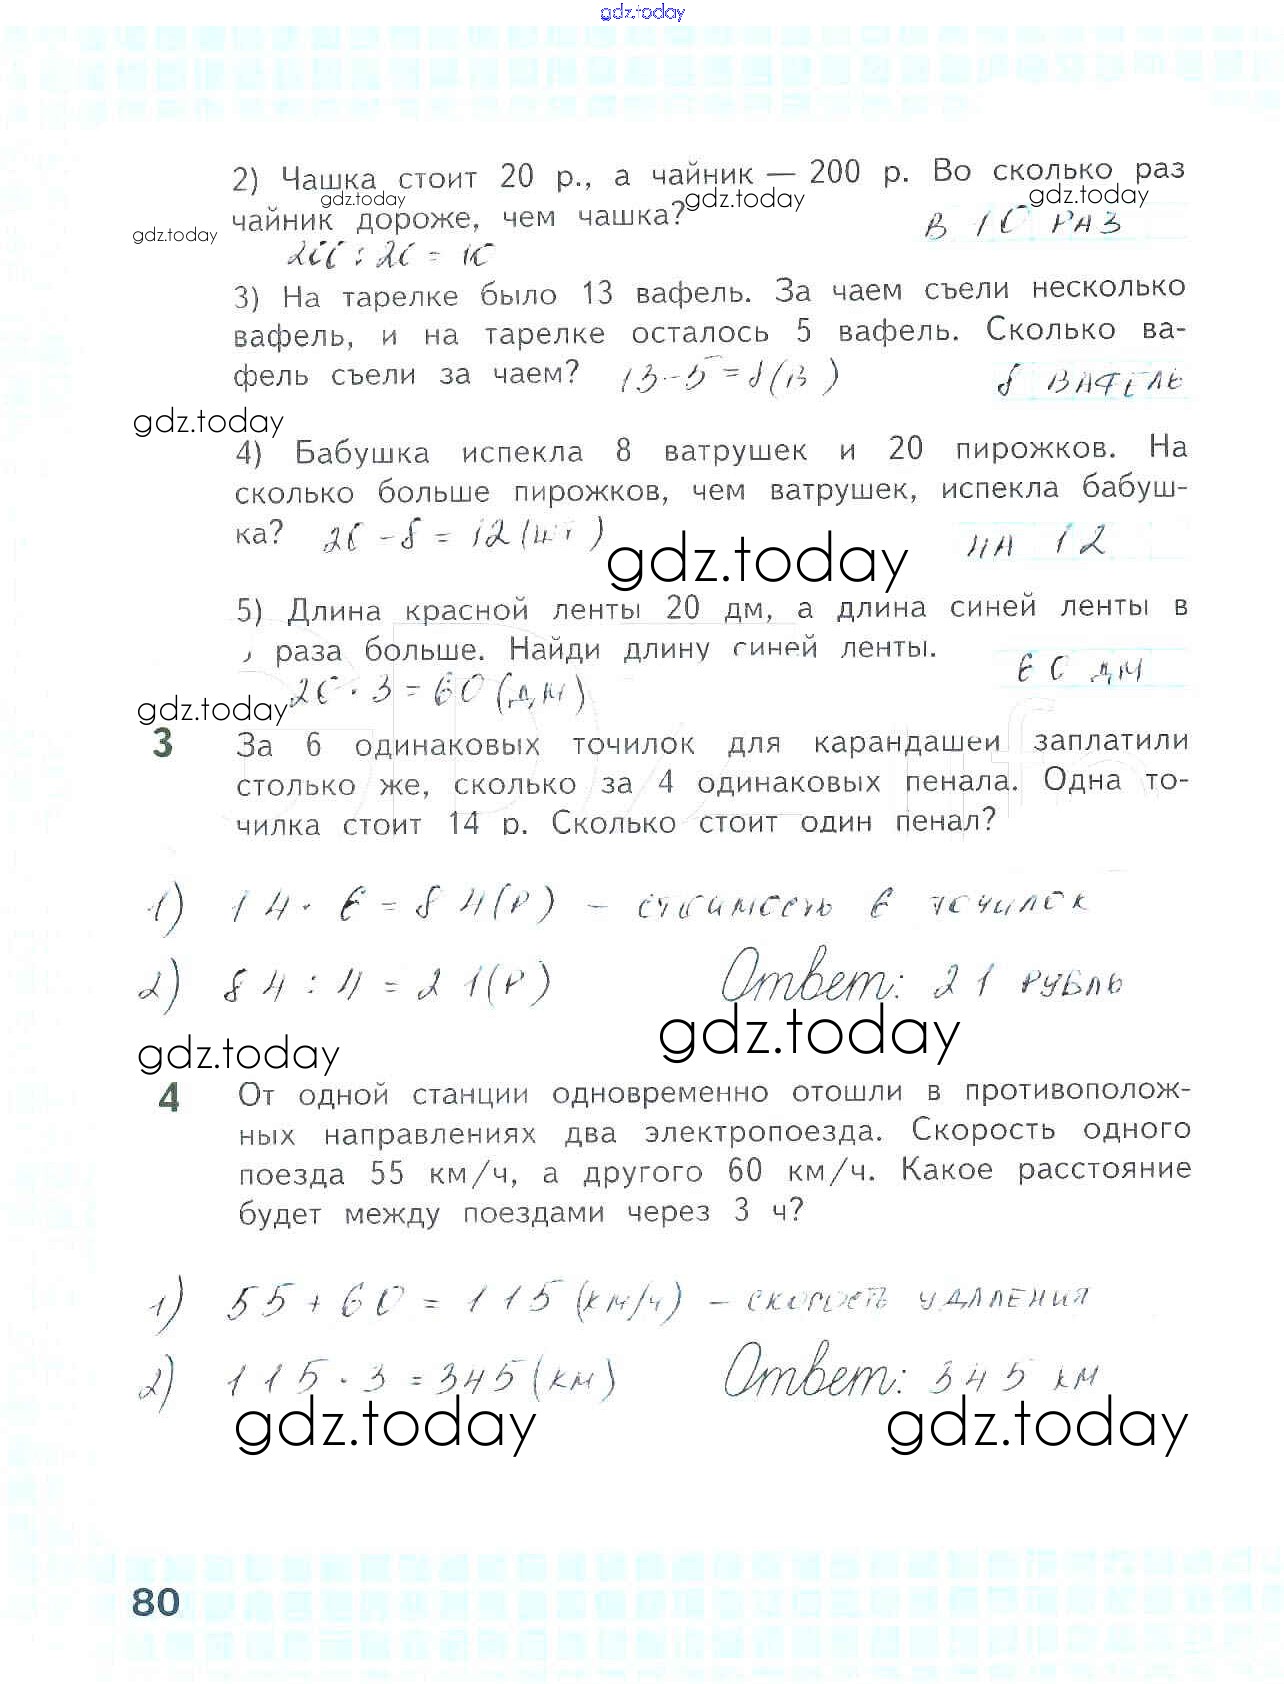 gdz.today
2) Чашка стоит 20 р., а чайник — 200 р. Во сколько раз
gdz.today gdz.today gdz.today
чайник дороже, чем чашка?
gdz.today
В 10 РАЗ
200 : 20 = 10
3) На тарелке было 13 вафель. За чаем съели несколько
вафель, и на тарелке осталось 5 вафель. Сколько ва-
фель съели за чаем? 13-5=8(В) 8 ВАФЕЛЬ
gdz.today
4) Бабушка испекла 8 ватрушек и 20 пирожков. На
сколько больше пирожков, чем ватрушек, испекла бабуш-
ка? 20-8=12(шт) НА 12
gdz.today
5) Длина красной ленты 20 дм, а длина синей ленты в
раза больше. Найди длину синей ленты.
60 дм
20·3=60(дм)
gdz.today
3 За 6 одинаковых точилок для карандашей заплатили
столько же, сколько за 4 одинаковых пенала. Одна то-
чилка стоит 14 р. Сколько стоит один пенал?
1) 14·6=84(Р) – стоимость 6 точилок
2) 84:4=21(Р) Ответ: 21 РУБЛЬ
gdz.today
gdz.today
4 От одной станции одновременно отошли в противополож-
ных направлениях два электропоезда. Скорость одного
поезда 55 км/ч, а другого 60 км/ч. Какое расстояние
будет между поездами через 3 ч?
1) 55+60=115(км/ч) – скорость УДАЛЕНИЯ
2) 115·3=345(км) Ответ: 345 км
gdz.today gdz.today
80